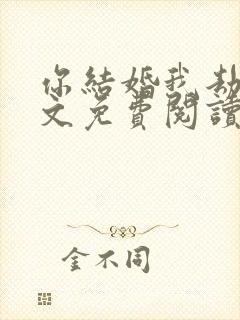 你結婚我劫
文免費閱讀
金不同